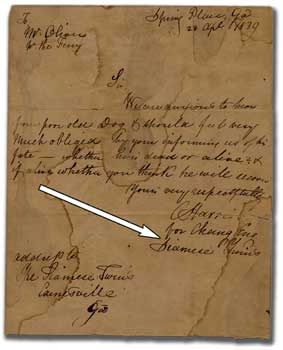 Spring Place, Ga
28 Apl 1839
To
Mr. Olion
for the ferry
Sir
We are anxious to hear
from poor old Dog & should feel very
much obliged by you informing us of his
fate – whether he is dead or alive – &
if alive whether you think he will recover
Yours very respectfully
C Harris
for Chang Eng
Siamese Twins
address to
The Siamese Twins
Gainesville
Ga